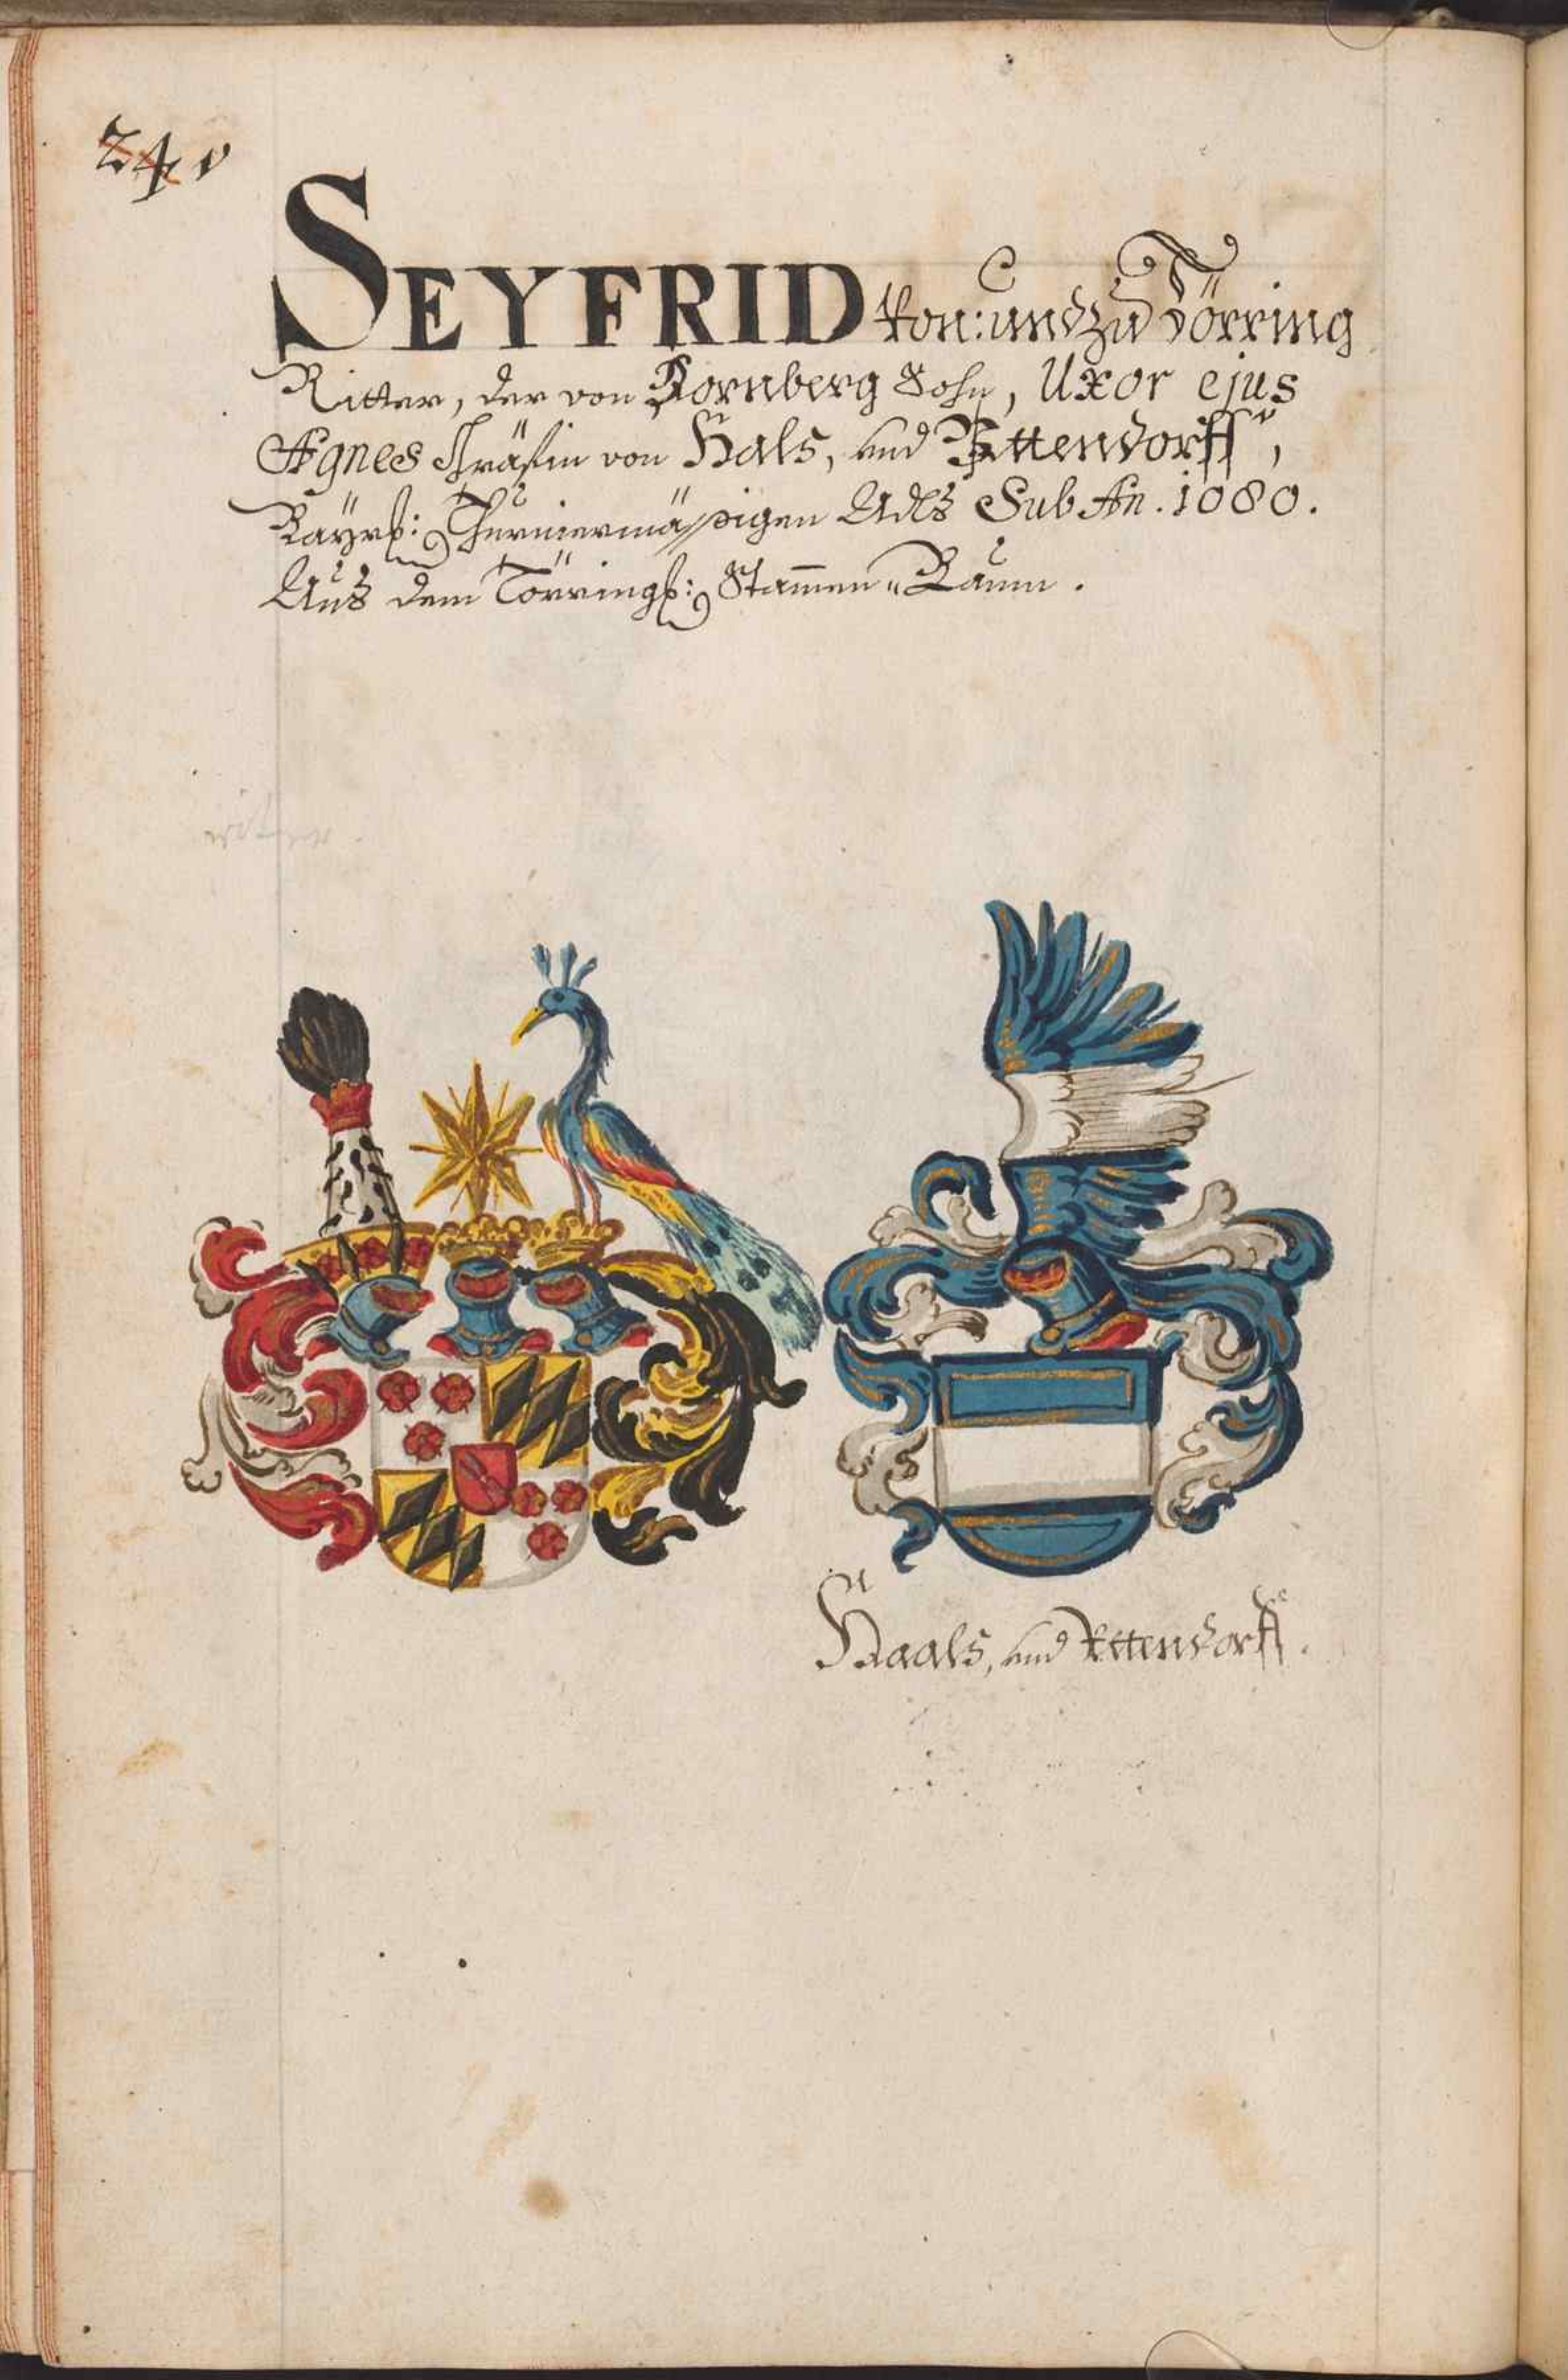 24v
SEYFRID von: und zu Törring
Ritter, der von Kornberg Sohn, Uxor ejus
Agnes Gräfin von Hals, und Ettendorff,
Bayrß: Thurniermässigen Adls Sub An. 1080.
Aus dem Törringß: Stam̅en„Baum.
Haals, und Ettendorff.